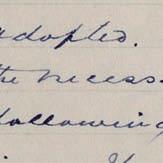 adopted.
the necess
following